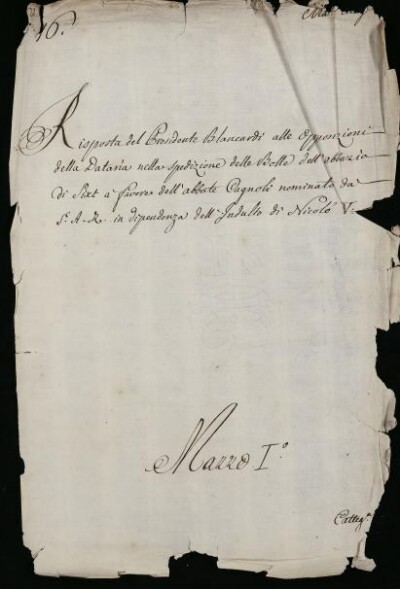 16.
Risposta del Presidente Blancardi alle Opposizioni
della Dataria nella spedizione delle Bolle dell'abbazia
di Sixt a favore dell'abbate Cagnoli nominato da
S. A. R. in dipendenza dell'Indulto di Nicolò V.
Mazzo I.°
Categ.ª